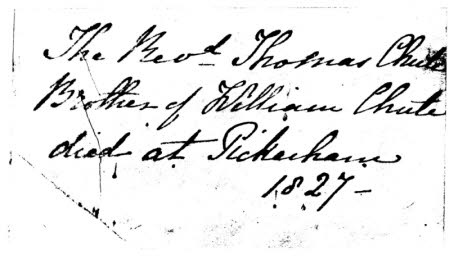 The Revd Thomas Chute
Brother of William Chute
died at Pickenham
1827 –